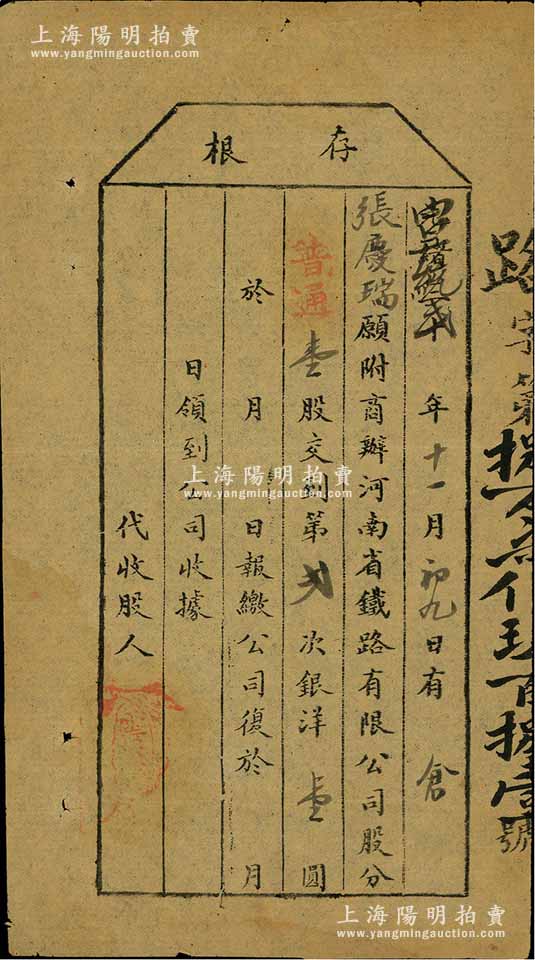 上海陽明拍賣
www.yangmingauction.com
存根
宣統貳年十一月初九日有 倉
張慶瑞願附商辦河南省鐵路有限公司股分
普通壹股交到第弍次銀洋壹圓
於 月 日報繳公司復於 月
日領到公司收據
代收股人
路字第捌万六仟玖百捌壹號
上海陽明拍賣
www.yangmingauction.com
上海陽明拍賣
www.yangmingauction.com